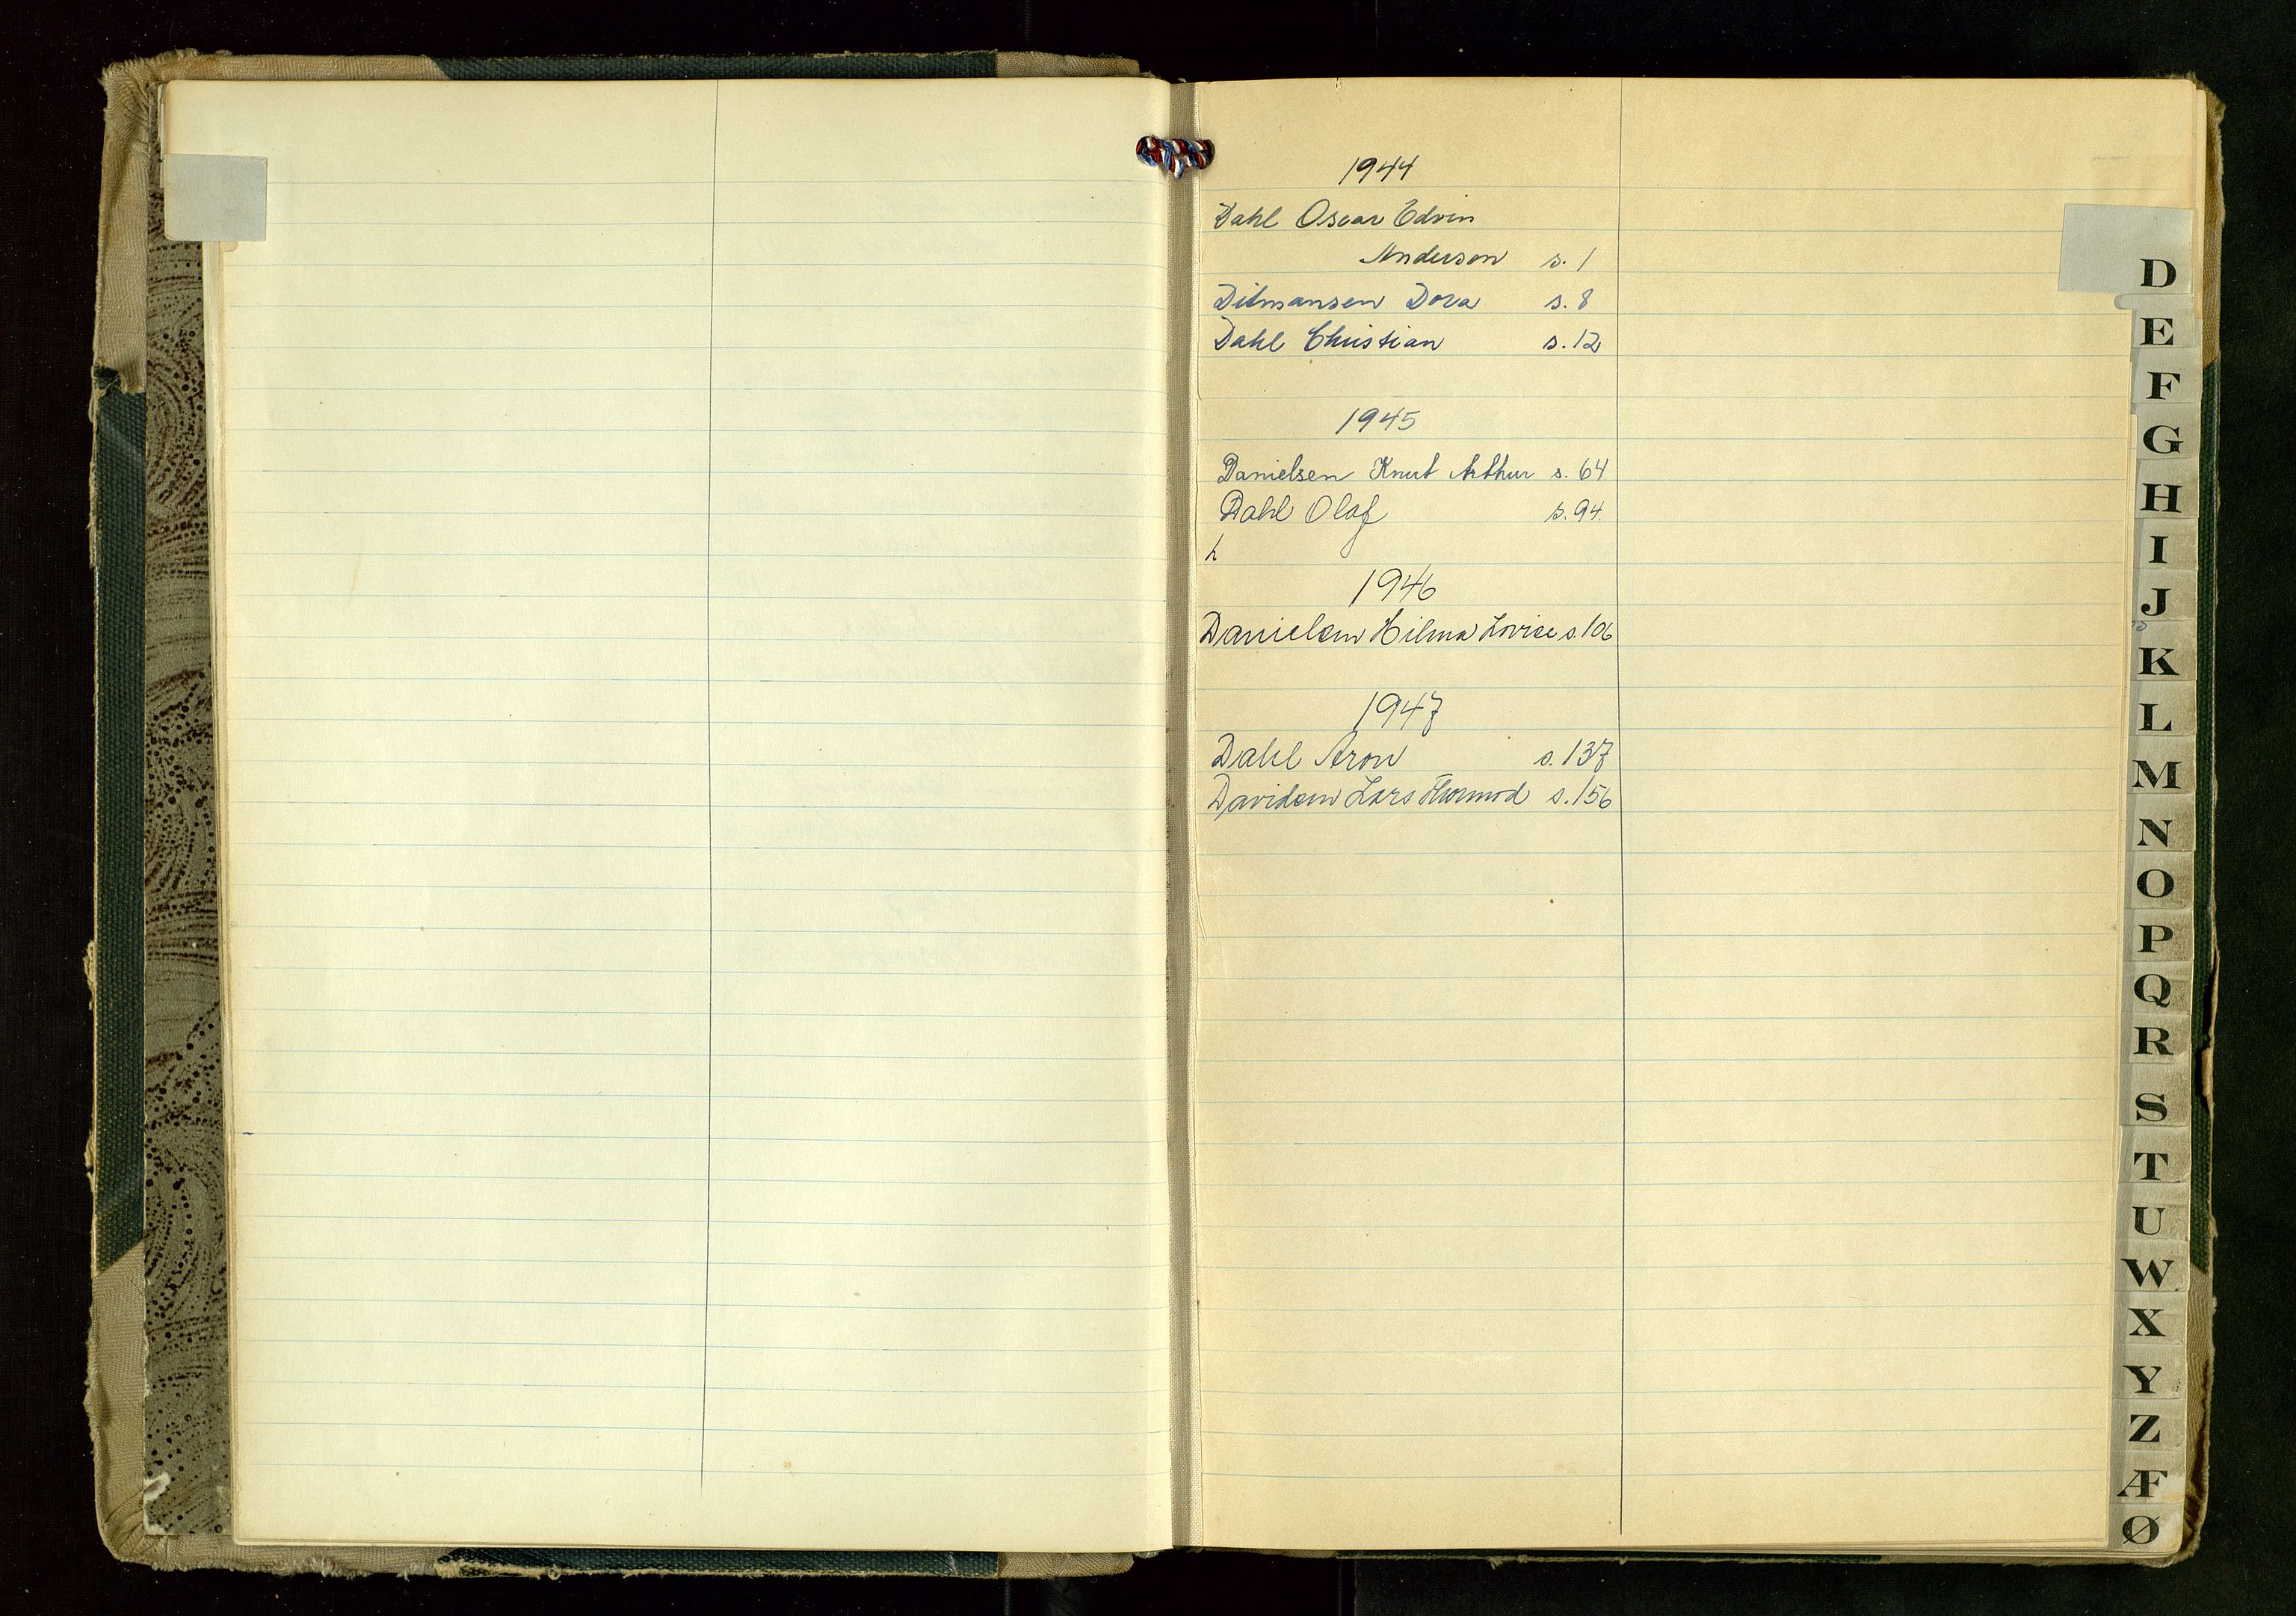 1944
Dahl Oscar Edvin
Anderson s. 1
Ditmansen Dora s. 8
Dahl Christian s. 12
1945
Danielsen Knut Arthur s. 64
Dahl Olaf s. 94.
h
1946
Danielsen Hilma Lovise s. 106
1947
Dahl Aron s. 137
Davidsen Lars Thormod s. 156
D
E
F
G
H
I
J
K
L
M
N
O
P
Q
R
S
T
U
W
X
Y
Z
Æ
Ø